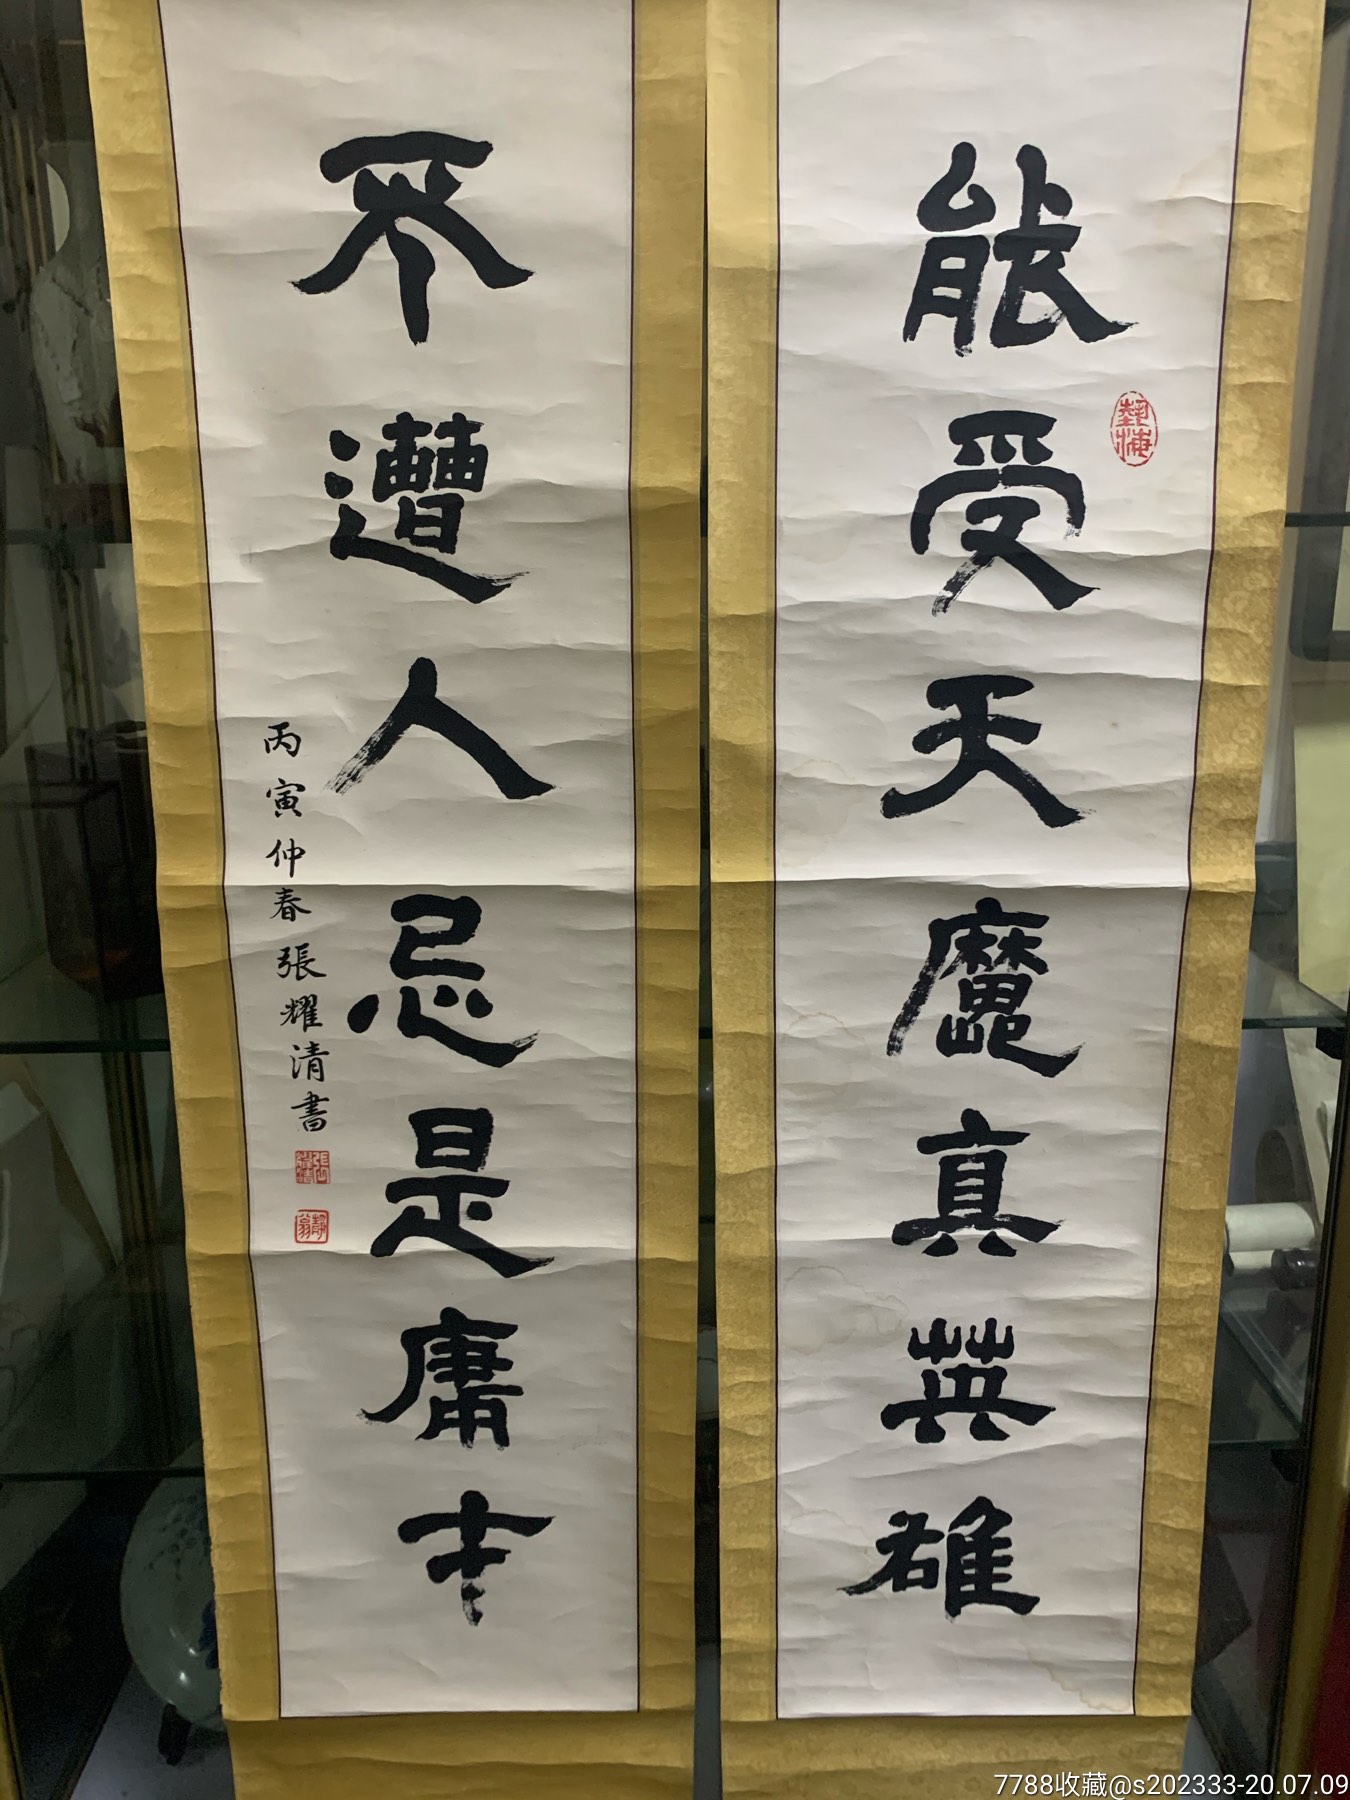 能受天魔真英雄
不遭人忌是庸才
丙寅仲春張耀清書
7788收藏@s202333-20.07.09